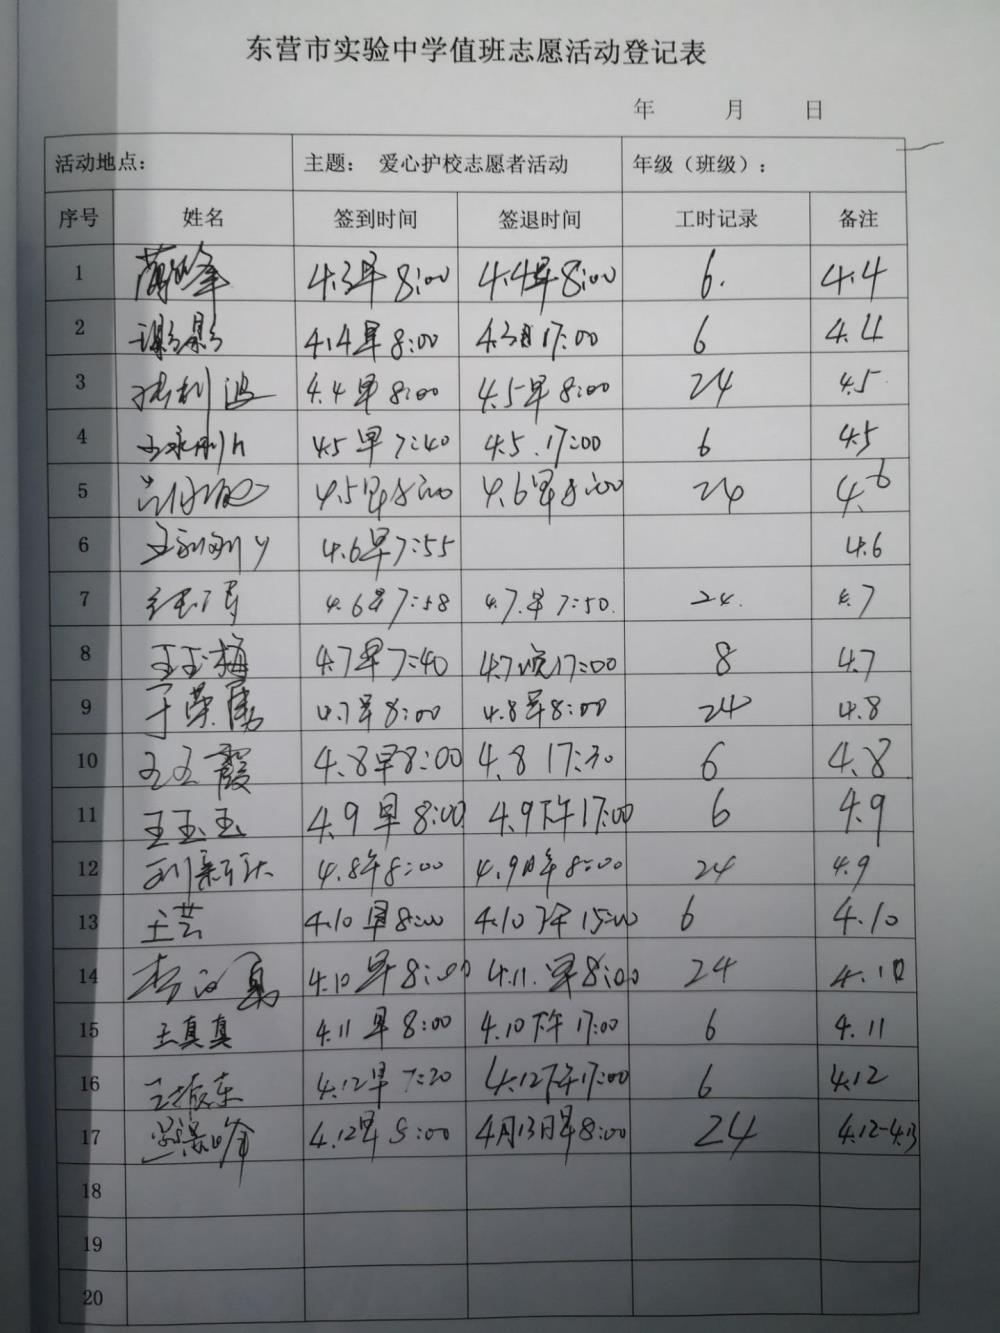 东营市实验中学值班志愿活动登记表
年 月 日
活动地点： 主题： 爱心护校志愿者活动 年级（班级）：
序号 姓名 签到时间 签退时间 工时记录 备注
1 4.3早8:00 4.4早8:00 6. 4.4
2 4.4早8:00 4.3日17:00 6 4.4
3 4.4早8:00 4.5早8:00 24 4.5
4 4.5早7:40 4.5.17:00 6 4.5
5 4.5早8:00 4.6早8:00 24 4.6
6 4.6早7:55 4.6
7 4.6早7:58 4.7.早7:50. 24. 4.7
8 王玉梅 4.7早7:40 4.7晚17:00 8 4.7
9 于荣 4.7早8:00 4.8早8:00 24 4.8
10 王玉霞 4.8早8:00 4.8 17:30 6 4.8
11 王玉玉 4.9早8:00 4.9下午17:00 6 4.9
12 4.8早8:00 4.9日早8:00 24 4.9
13 王芸 4.10早8:00 4.10下午15:00 6 4.10
14 李 4.10早8:00 4.11.早8:00 24 4.10
15 王真真 4.11早8:00 4.10下午17:00 6 4.11
16 王振东 4.12早7:20 4.12下午17:00 6 4.12
17 4.12早8:00 4月13日早8:00 24 4.12-4.13
18
19
20